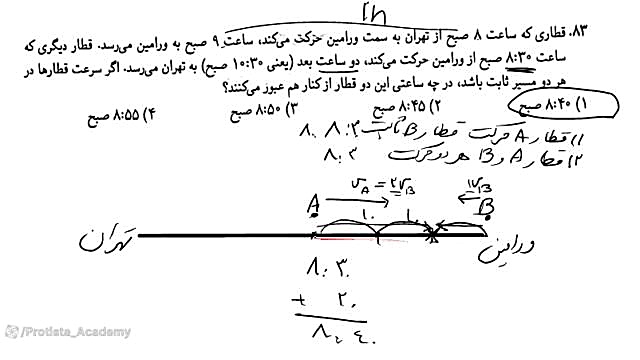 1h
۸۳. قطاری که ساعت ۸ صبح از تهران به سمت ورامین حرکت می‌کند، ساعت ۹ صبح به ورامین می‌رسد. قطار دیگری که
ساعت ۸:۳۰ صبح از ورامین حرکت می‌کند، دو ساعت بعد (یعنی ۱۰:۳۰ صبح) به تهران می‌رسد. اگر سرعت قطارها در
هر دو مسیر ثابت باشد، در چه ساعتی این دو قطار از کنار هم عبور می‌کنند؟
۱) ۸:۴۰ صبح ۲) ۸:۴۵ صبح ۳) ۸:۵۰ صبح ۴) ۸:۵۵ صبح
۱) قطار A حرکت قطار B ثابت ۸:۳۰ ۸
۲) قطار A و B هر دو حرکت ۸:۳۰
V_A = 2V_B V_B
A ۱۰ ۱۰ B
تهران ورامین
۸:۳۰
+ ۲۰
۸:۴۰
/Protista_Academy